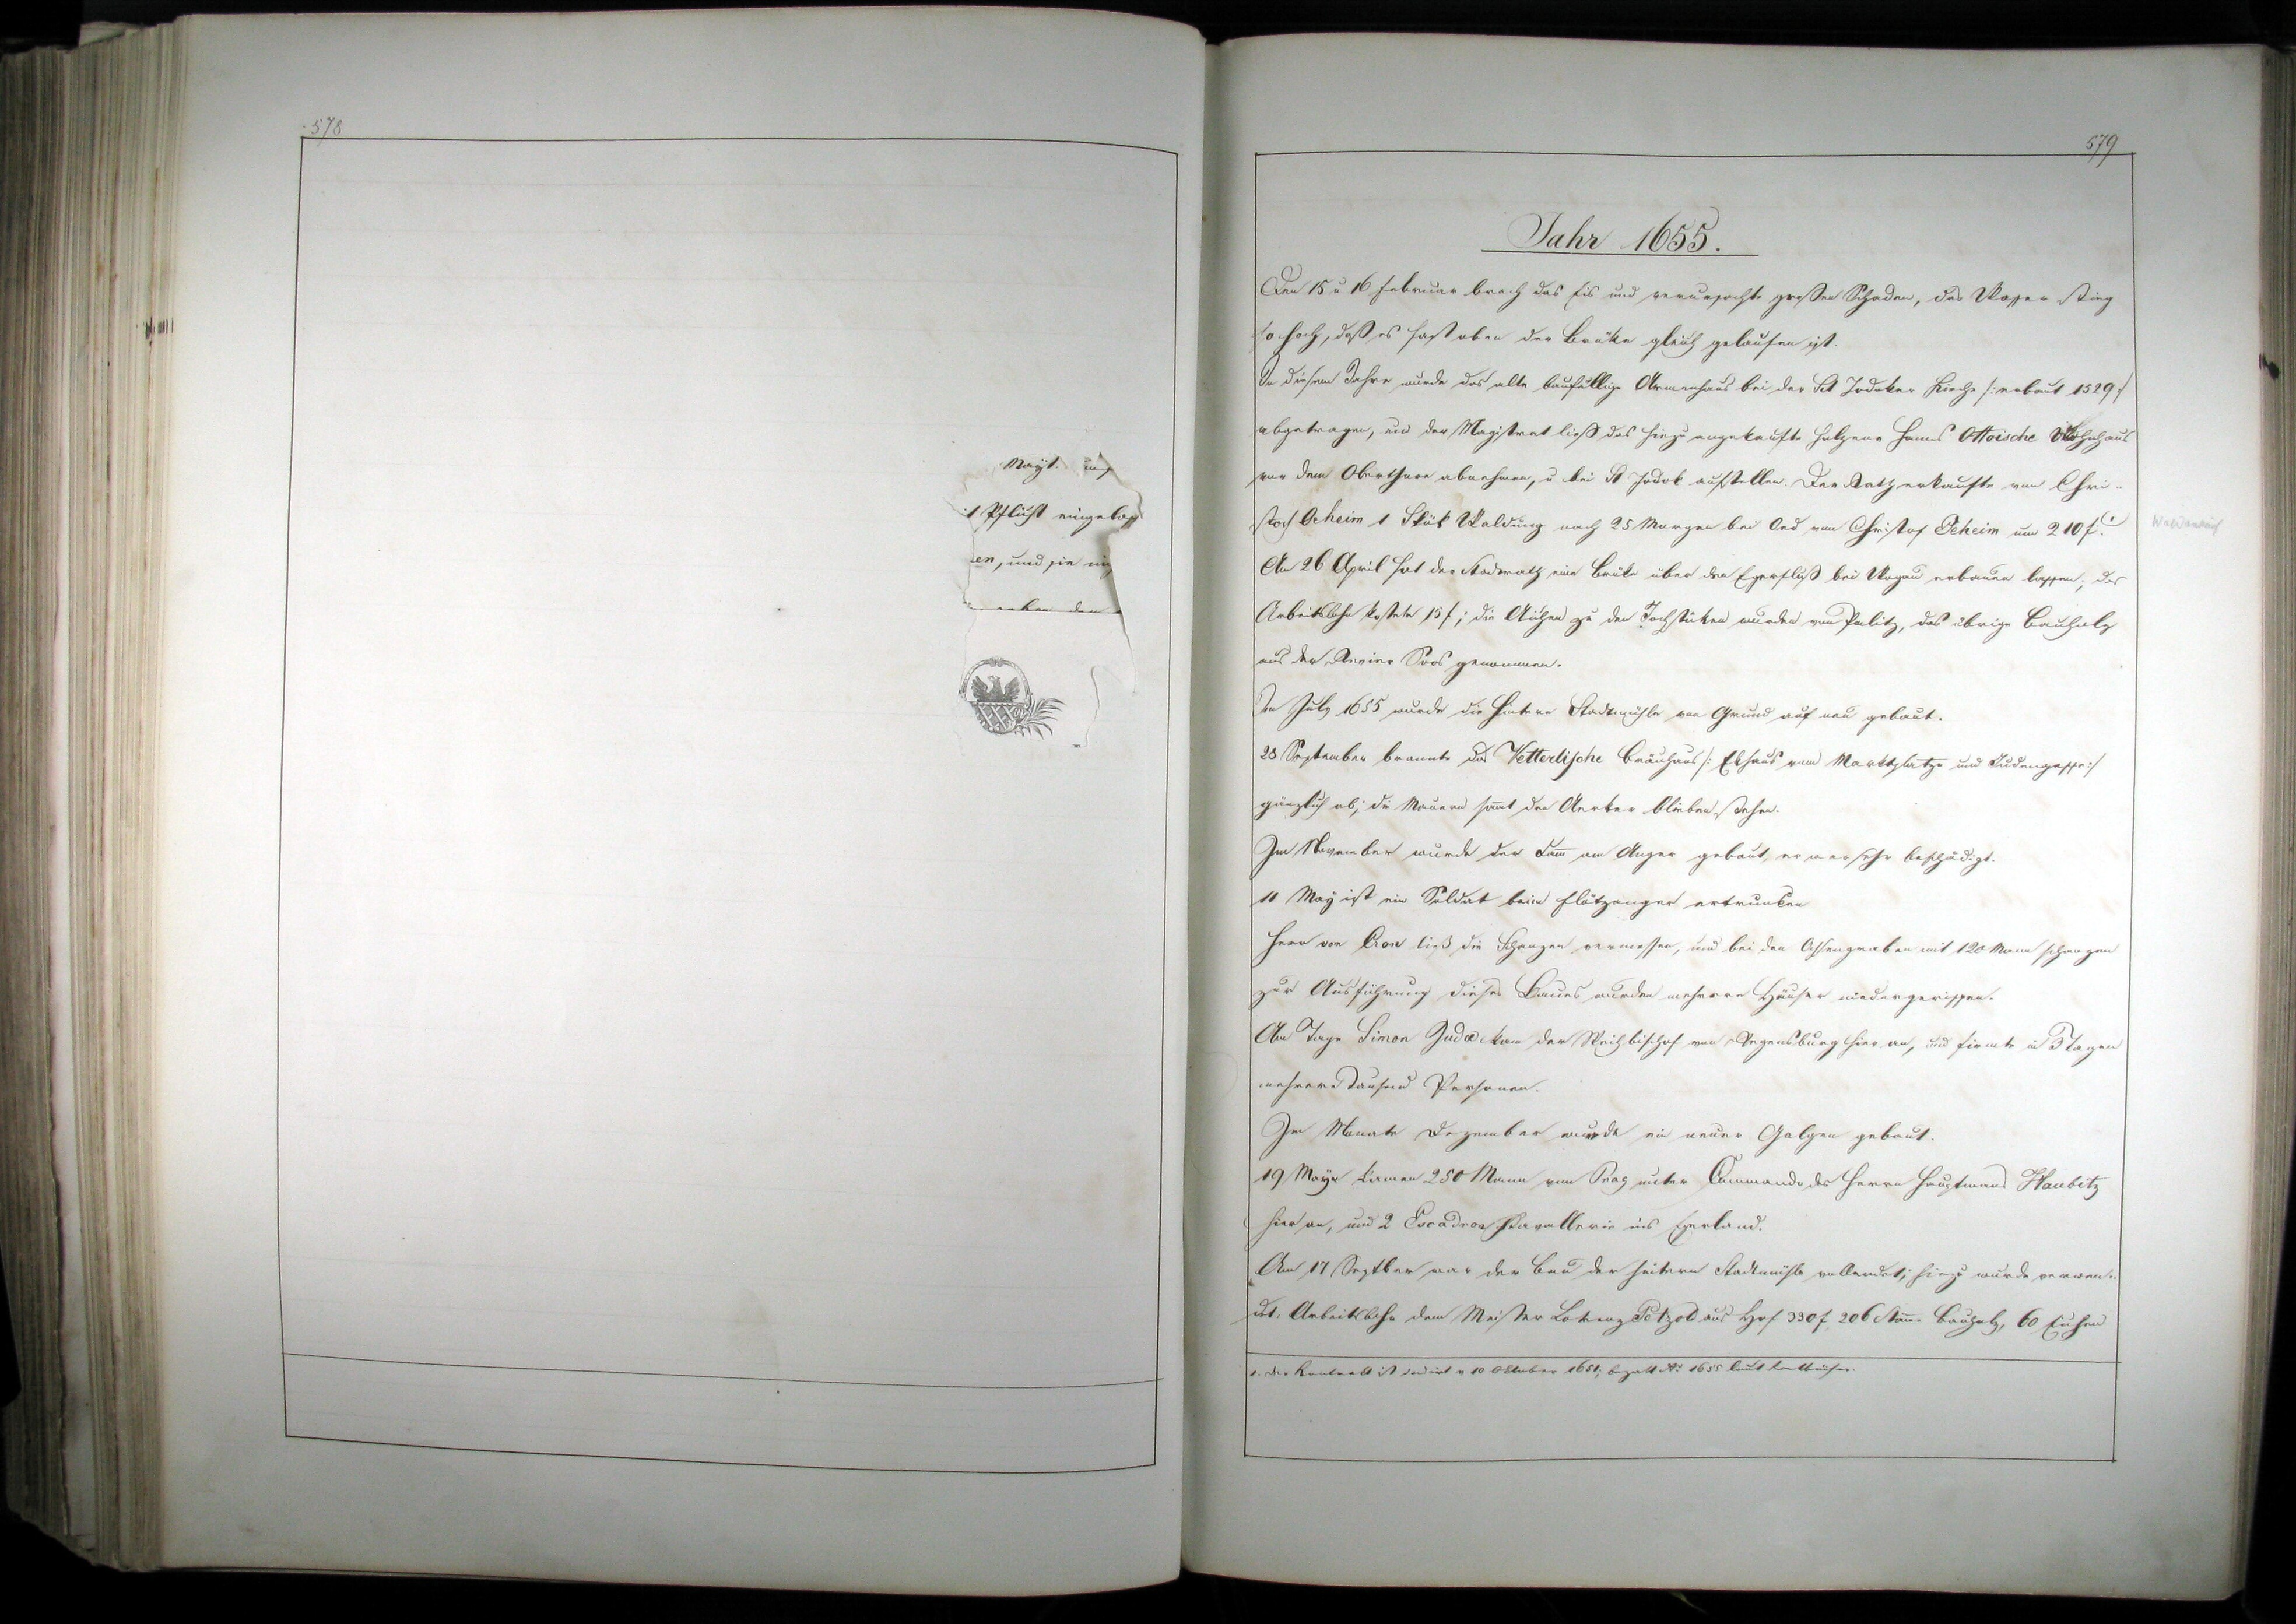 578
Mayt. und
it Pflicht eingelass
en, und sie
579
Jahr 1655.
Den 15 u 16 Februar brach das Eis und verursachte großen Schaden, das Wasser stieg
so hoch, daß es fast oben der Brüke gleich gelaufen ist.
In diesem Jahre wurde das alte baufällige Armenhaus bei der Sct Jodoker Kirche /: erbaut 1529 :/
abgetragen, und der Magistrat ließ das hiezu angekaufte hulzene Hanns Ottoische Wohnhaus
vor dem Oberthore abnehmen, u bei St Jodok aufstellen. Der Rath erkaufte von Chri-
stof Geheim 1 Stük Waldung nach 25 Morgen bei Oed vom Christof Geheim um 210 f.
Am 26 April hat der Stadtrath eine Brüke über den Egerfluß bei Wogau erbauen lassen; das
Arbeitslohn kostete 15 f; die Aichen zu den Jochstüken wurden von Palitz, das übrige Bauholz
aus der Revier Soos genommen.
Im July 1655 wurde die hintere Stadtmühle von Grund auf neu gebaut.
28 September brannte das Vetterlische Bräuhaus /: Ekhaus vom Marktplatze und Judengasse :/
gänzlich ab; die Mauern samt den Aerker blieben stehen.
Im November wurde der Dam am Anger gebaut, er war sehr beschädigt.
11 May ist ein Soldat beim Flötzanger ertrunken
Herr von Cron ließ die Schanzen vermessen, und bei den Ochsengraben mit 120 Mann schanzen
zur Ausführung dieses Baues wurden mehrere Häuser niedergerissen.
Am Tage Simon Judæ kam der Weihbischof von Regensburg hier an, und firmte in 3 Tagen
mehrere Tausend Personen.
Im Monate Dezember wurde ein neuer Galgen gebaut.
19 May kamen 250 Mann von Prag unter Commando des Herrn Hauptmans Haubitz
hier an, und 2 Escadron Kavallerie ins Egerland.
Am 17 Septber war der Bau der hintern Stadtmühle vollendet; hiezu wurde verwen-
det: Arbeitslohn dem Meister Lorenz Petzold aus Hof 330 f 206 Stam Bauholz, 60 Eichen
1. der Kontrakt ist datirt v 10 Oktober 1651; bezalt Ao 1655 laut